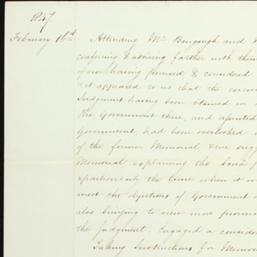 1847
February 16th Attending Mr Bengough and
conferring & advising farther with them
of our having perused & considered
it appeared to us that the
Judgment having been obtained in
the Government there, and
Government, had been overlooked
of the former Memorial
Memorial explaining the
particularly the time when it
meet the objections of Government
also bringing to view more
the Judgment. Engaged a
Taking Instructions for